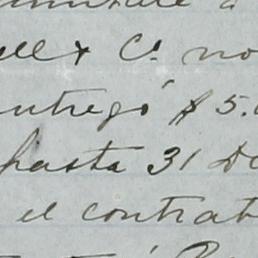 ell & Co. no
entregó $ 5.
hasta 31 De
el contrat